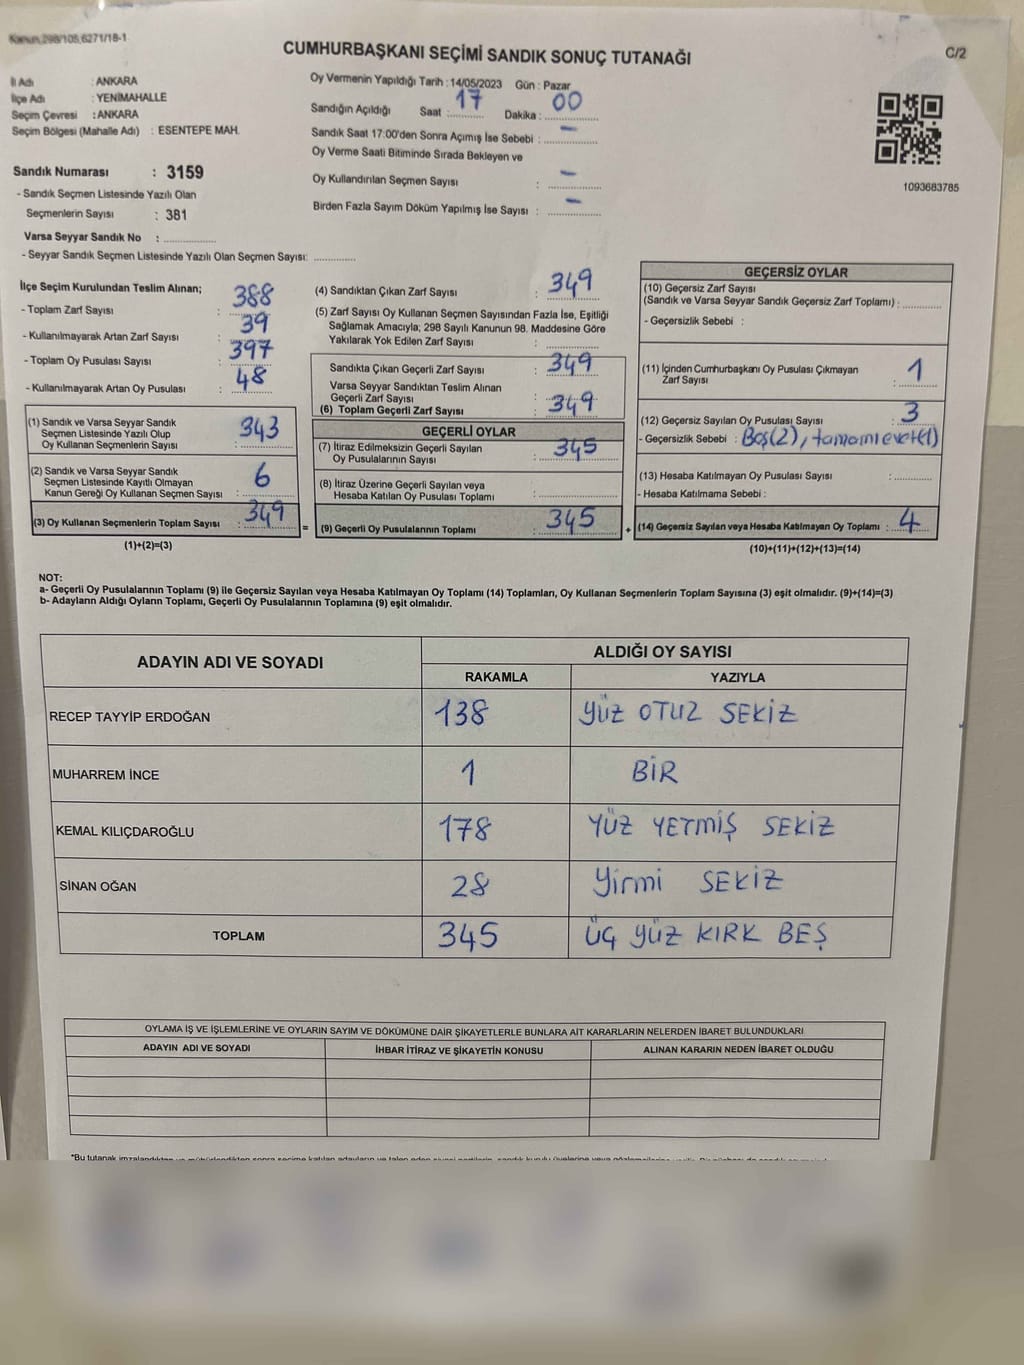 Kanun,298/105,6271/18-1
CUMHURBAŞKANI SEÇİMİ SANDIK SONUÇ TUTANAĞI
C/2
İl Adı : ANKARA
İlçe Adı : YENİMAHALLE
Seçim Çevresi : ANKARA
Seçim Bölgesi (Mahalle Adı) : ESENTEPE MAH.
Oy Vermenin Yapıldığı Tarih : 14/05/2023 Gün : Pazar
Sandığın Açıldığı Saat : 17 Dakika : 00
Sandık Saat 17:00'den Sonra Açımış İse Sebebi : -
Oy Verme Saati Bitiminde Sırada Bekleyen ve
Oy Kullandırılan Seçmen Sayısı : -
Birden Fazla Sayım Döküm Yapılmış İse Sayısı : -
1093683785
Sandık Numarası : 3159
- Sandık Seçmen Listesinde Yazılı Olan
Seçmenlerin Sayısı : 381
Varsa Seyyar Sandık No : ..............
- Seyyar Sandık Seçmen Listesinde Yazılı Olan Seçmen Sayısı: ............
İlçe Seçim Kurulundan Teslim Alınan;
- Toplam Zarf Sayısı : 388
- Kullanılmayarak Artan Zarf Sayısı : 39
- Toplam Oy Pusulası Sayısı : 397
- Kullanılmayarak Artan Oy Pusulası : 48
(1) Sandık ve Varsa Seyyar Sandık
Seçmen Listesinde Yazılı Olup
Oy Kullanan Seçmenlerin Sayısı : 343
(2) Sandık ve Varsa Seyyar Sandık
Seçmen Listesinde Kayıtlı Olmayan
Kanun Gereği Oy Kullanan Seçmen Sayısı : 6
(3) Oy Kullanan Seçmenlerin Toplam Sayısı : 349
(1)+(2)=(3)
(4) Sandıktan Çıkan Zarf Sayısı : 349
(5) Zarf Sayısı Oy Kullanan Seçmen Sayısından Fazla İse, Eşitliği
Sağlamak Amacıyla; 298 Sayılı Kanunun 98. Maddesine Göre
Yakılarak Yok Edilen Zarf Sayısı : ............
Sandıkta Çıkan Geçerli Zarf Sayısı : 349
Varsa Seyyar Sandıktan Teslim Alınan
Geçerli Zarf Sayısı :
(6) Toplam Geçerli Zarf Sayısı : 349
GEÇERLİ OYLAR
(7) İtiraz Edilmeksizin Geçerli Sayılan
Oy Pusulalarının Sayısı : 345
(8) İtiraz Üzerine Geçerli Sayılan veya
Hesaba Katılan Oy Pusulası Toplamı : ............
= (9) Geçerli Oy Pusulalarının Toplamı : 345 +
GEÇERSİZ OYLAR
(10) Geçersiz Zarf Sayısı
(Sandık ve Varsa Seyyar Sandık Geçersiz Zarf Toplamı) : ..........
- Geçersizlik Sebebi :
(11) İçinden Cumhurbaşkanı Oy Pusulası Çıkmayan
Zarf Sayısı : 1
(12) Geçersiz Sayılan Oy Pusulası Sayısı : 3
- Geçersizlik Sebebi : Boş(2), tamamı evet(1)
(13) Hesaba Katılmayan Oy Pusulası Sayısı : ..........
- Hesaba Katılmama Sebebi :
(14) Geçersiz Sayılan veya Hesaba Katılmayan Oy Toplamı : 4
(10)+(11)+(12)+(13)=(14)
NOT:
a- Geçerli Oy Pusulalarının Toplamı (9) ile Geçersiz Sayılan veya Hesaba Katılmayan Oy Toplamı (14) Toplamları, Oy Kullanan Seçmenlerin Toplam Sayısına (3) eşit olmalıdır. (9)+(14)=(3)
b- Adayların Aldığı Oyların Toplamı, Geçerli Oy Pusulalarının Toplamına (9) eşit olmalıdır.
ADAYIN ADI VE SOYADI ALDIĞI OY SAYISI
RAKAMLA YAZIYLA
RECEP TAYYİP ERDOĞAN 138 YÜZ OTUZ SEKİZ
MUHARREM İNCE 1 BİR
KEMAL KILIÇDAROĞLU 178 YÜZ YETMİŞ SEKİZ
SİNAN OĞAN 28 Yirmi SEKİZ
TOPLAM 345 ÜÇ YÜZ KIRK BEŞ
OYLAMA İŞ VE İŞLEMLERİNE VE OYLARIN SAYIM VE DÖKÜMÜNE DAİR ŞİKAYETLERLE BUNLARA AİT KARARLARIN NELERDEN İBARET BULUNDUKLARI
ADAYIN ADI VE SOYADI İHBAR İTİRAZ VE ŞİKAYETİN KONUSU ALINAN KARARIN NEDEN İBARET OLDUĞU